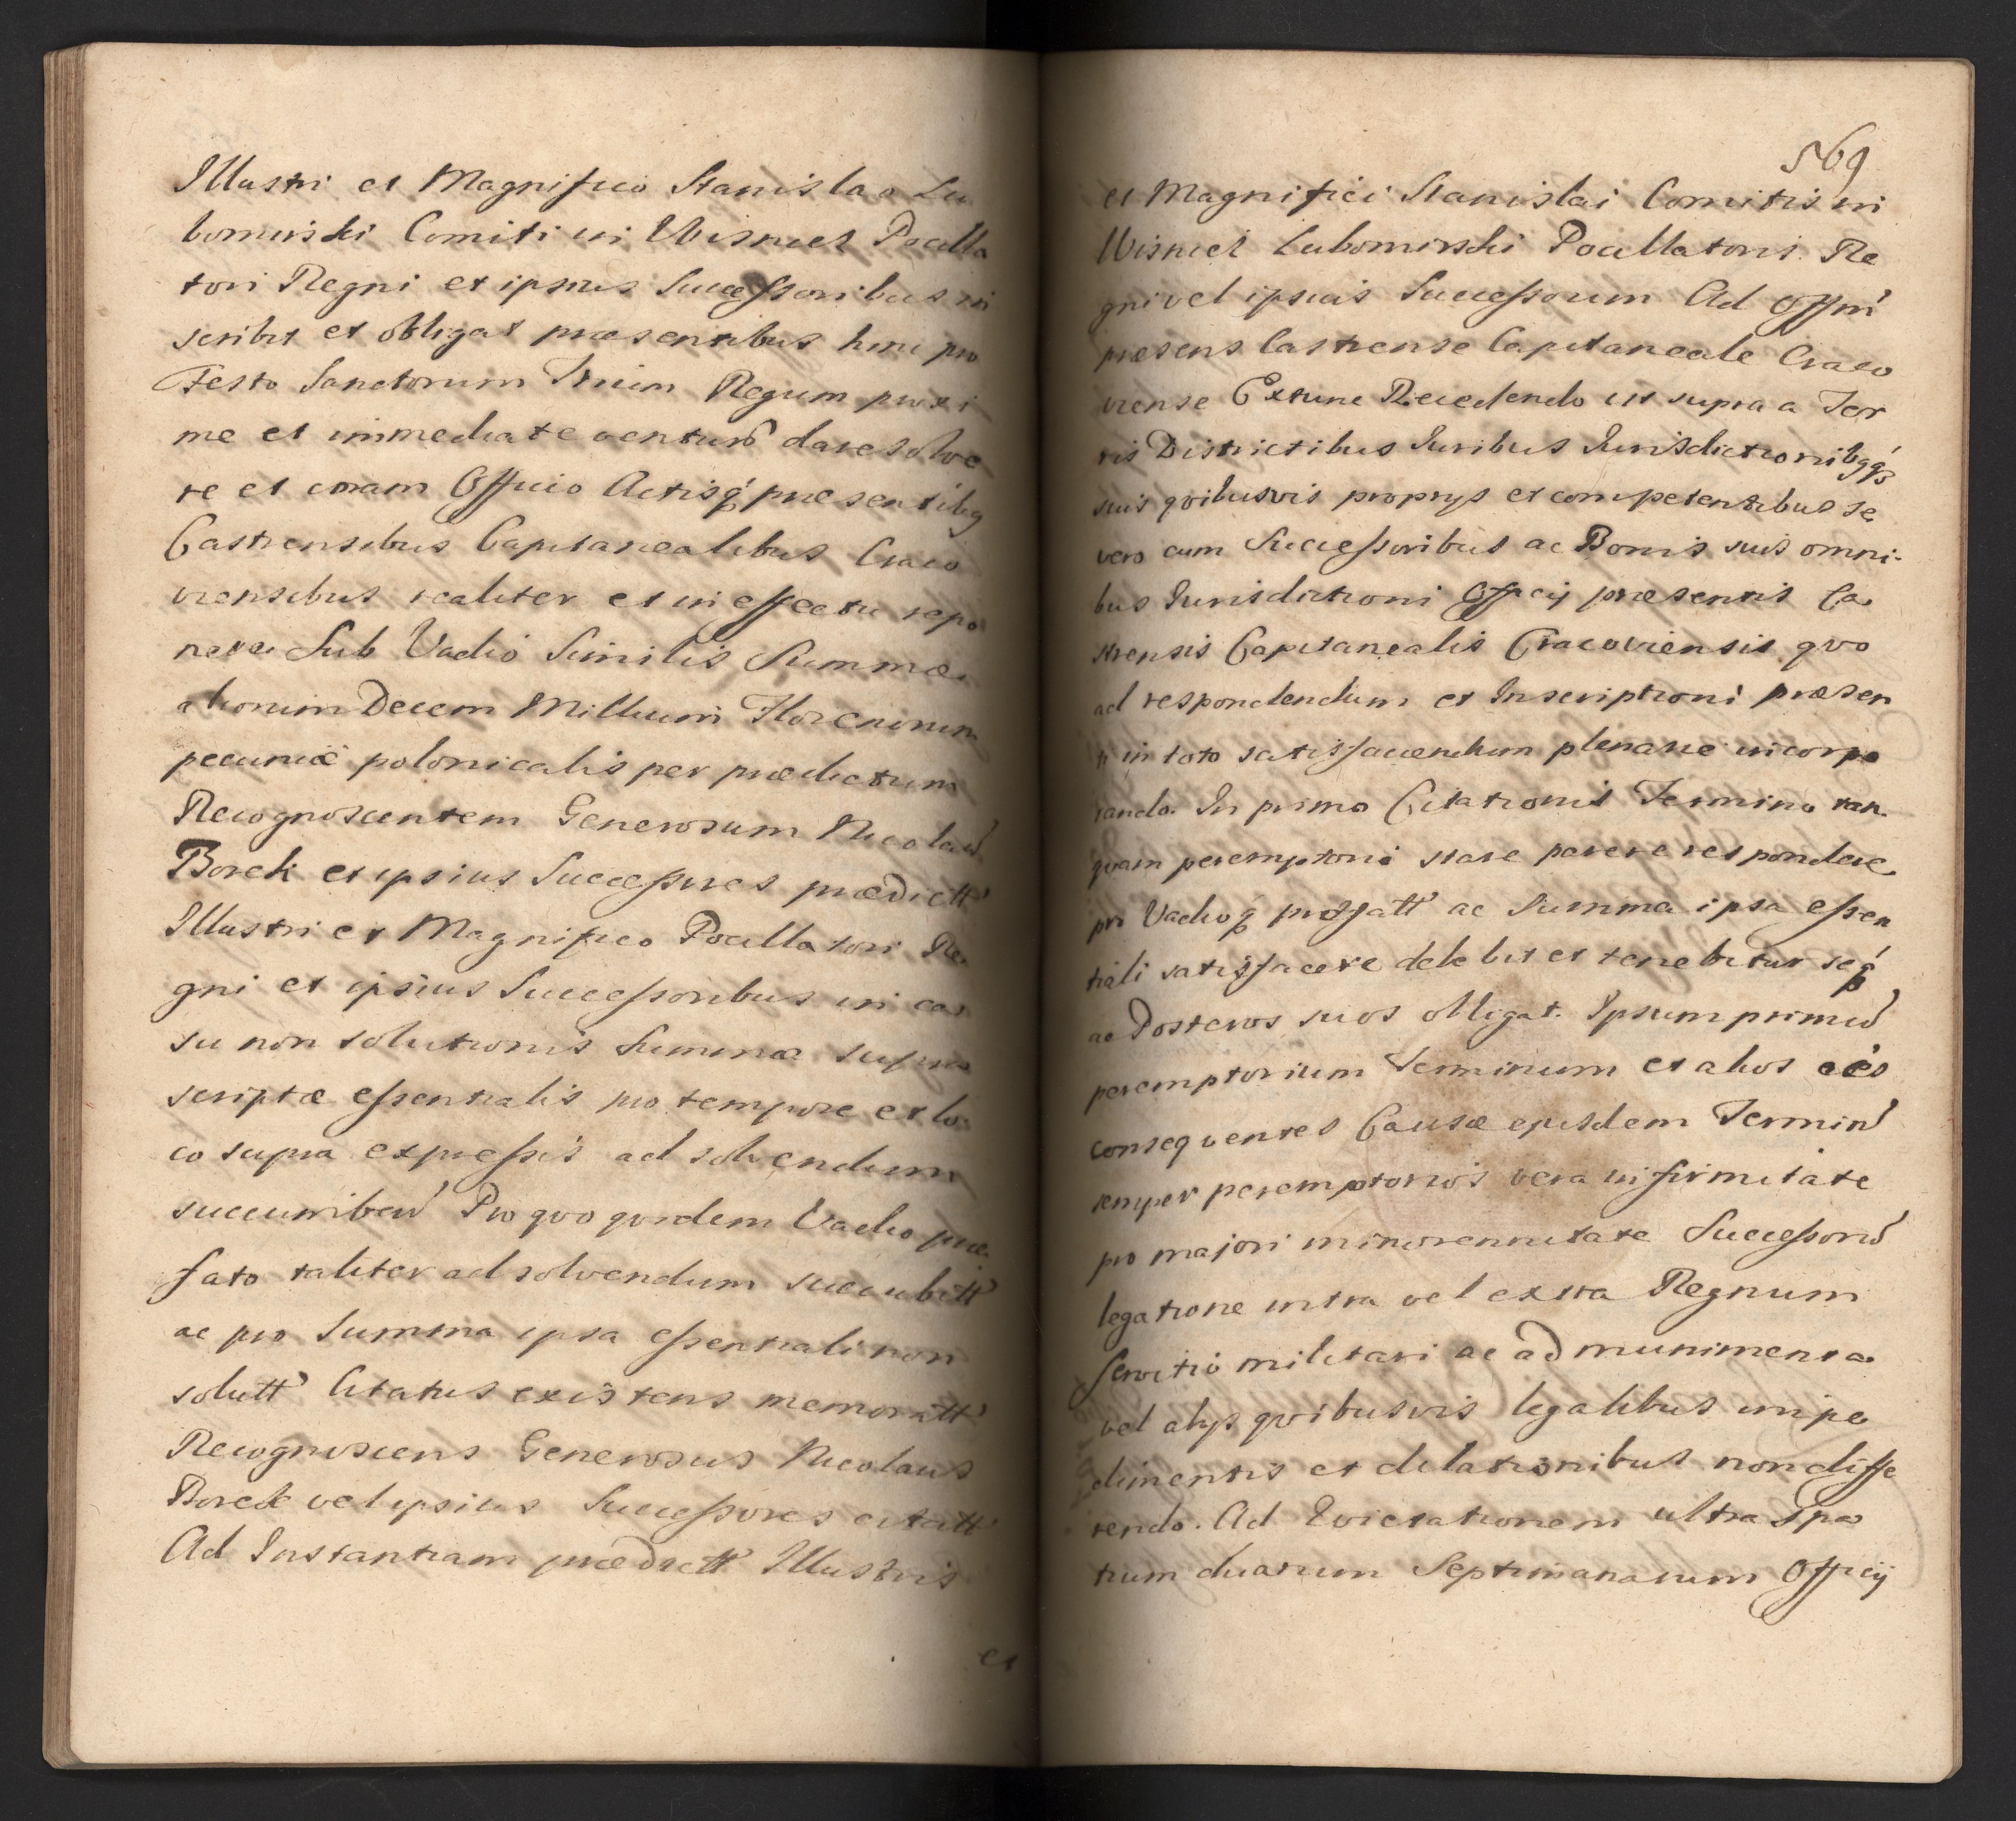 Illustri et Magnifico Stanislao Lu
bomirski Comiti in Wisnicz Pocilla
tori Regni et ipsius Successoribus in
scribit et obligat præsentibus hinc pro
Festo Sanctorum Trium Regum proxi
me et immediate venturo dare solve
re et coram Officio Actisq́ præsentibq
Castrensibus Capitanealibus Craco
viensibus realiter et in effectu repo
nere Sub Vadio Similis Summæ
aliorum Decem Millium Florenorum
pecuniæ polonicalis per prædictum
Recognoscentem Generosum Nicolaū
Borek et ipsius Successores prædictt
Illustri et Magnifico Pocillatori Re
gni et ipsius Successoribus in ca
su non solutionis Summæ supra
scriptæ essentialis pro tempore et lo
co supra expressis ad solvendum
succumbeñ Pro qvo qvidem Vadio præ
fato taliter ad solvendum succubitt
ac pro Summa ipsa essentiali non
solutt Citatus existens memoratt
Recognoscens Generosus Nicolaus
Borek vel ipsius Successores citatt
Ad Instantiam prædictt Illustris
et
569
et Magnifici Stanislai Comitis in
Wisnicz Lubomirski Pocillatoris Re
gni vel ipsius Successorum Ad Offm̃
præsens Castrense Capitaneale Craco
viense Extunc Recedendo ut supra a Ter
ris Districtibus Juribus Jurisdictionibqq́
suis qvibusvis proprys et competentibus se
vero cum Successoribus ac Bonis suis omni-
bus Jurisdictioni Officij præsentis Ca
strensis Capitanealis Cracoviensis qvo
ad respondendum et Inscriptioni præsen
ti in toto satisfaciendum plenarie incorpo
rando. In primo Citationis Termino tan
qvam peremptorio stare parere respondere
pro Vadioq præfatt ac Summa ipsa essen
tiali satisfacere debebit et tenebitur seq́
ac Posteros suos obligat. Ipsum primū
peremptorium Terminum et alios eos
conseqventes Causæ ejusdem Terminū
semper peremptorios vera infirmitate
pro majori minorennitate Successorū
legatione intra vel extra Regnum
servitio militari ac ad munimenta
vel alys qvibusvis legalibus impe
dimentis et dilationibus non diffe
rendo. Ad Evictationem ultra spa
tium duarum Septimanarum Officij